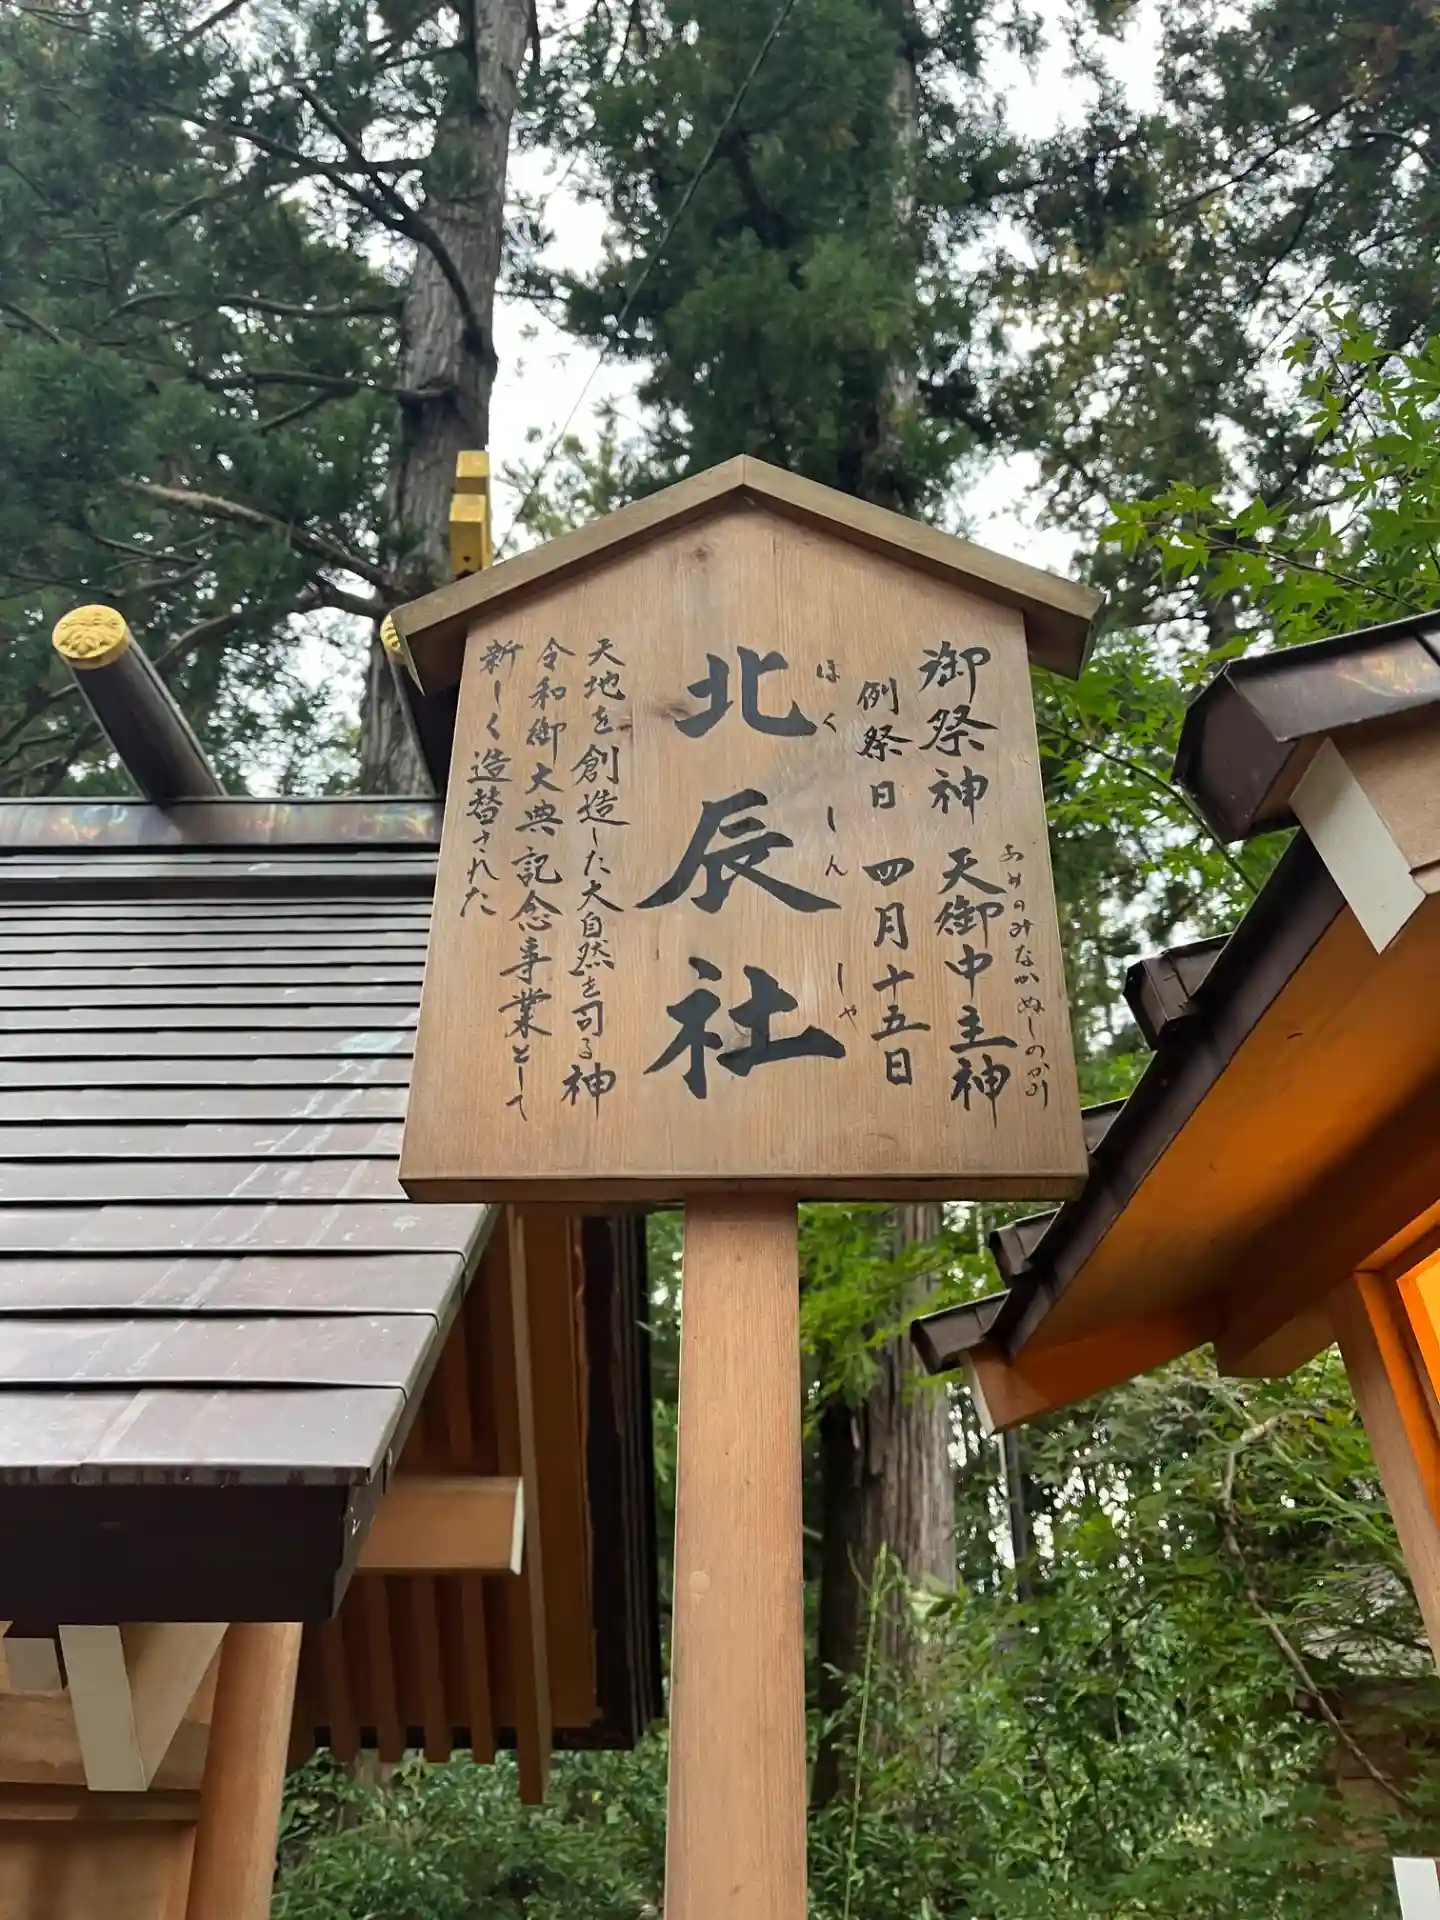 御祭神 天御中主神
あめのみなかぬしのかみ
例祭日 四月十五日
北辰社
ほくしんしゃ
天地を創造した大自然を司る神
令和御大典記念事業として
新しく造替された